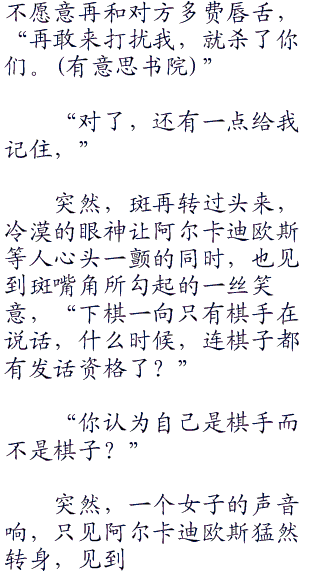 不愿意再和对方多费唇舌，
“再敢来打扰我，就杀了你
们。(有意思书院)”
“对了，还有一点给我
记住，”
突然，斑再转过头来，
冷漠的眼神让阿尔卡迪欧斯
等人心头一颤的同时，也见
到斑嘴角所勾起的一丝笑
意，“下棋一向只有棋手在
说话，什么时候，连棋子都
有发话资格了？”
“你认为自己是棋手而
不是棋子？”
突然，一个女子的声音
响，只见阿尔卡迪欧斯猛然
转身，见到